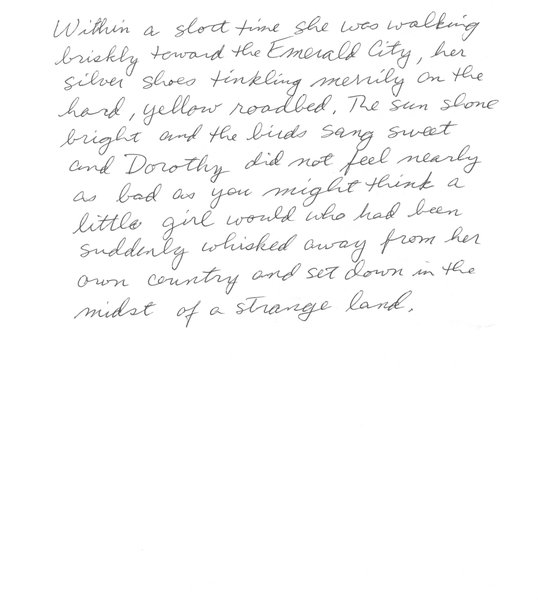 Within a short time she was walking
briskly toward the Emerald City, her
silver shoes tinkling merrily on the
hard, yellow roadbed. The sun shone
bright and the birds sang sweet
and Dorothy did not feel nearly
as bad as you might think a
little girl would who had been
suddenly whisked away from her
own country and set down in the
midst of a strange land.